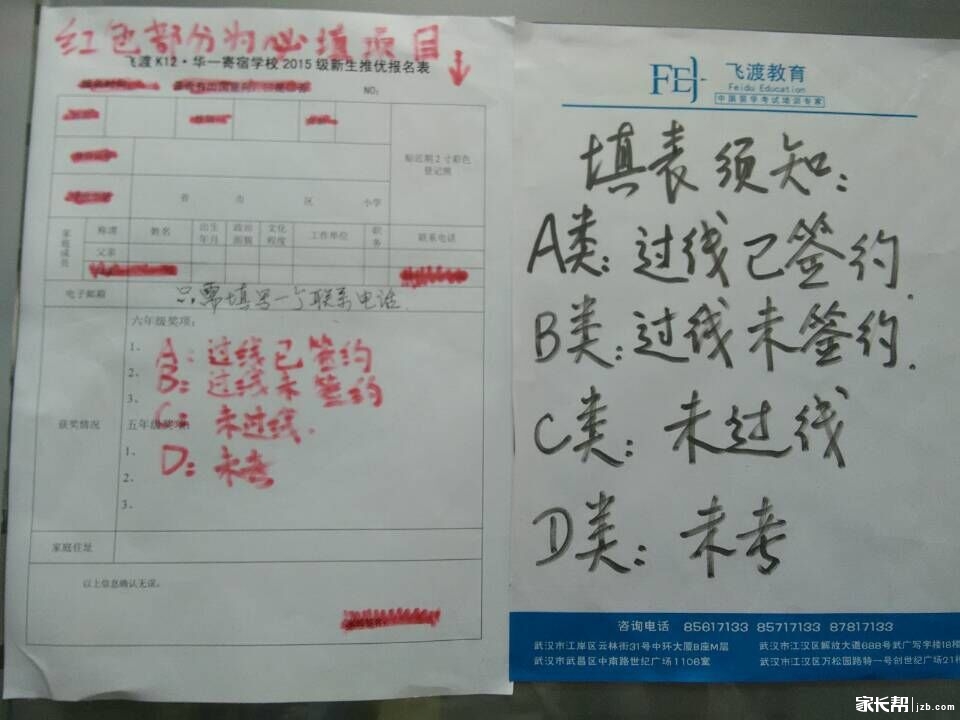 红色部分为必填项目
飞渡 K12·华一寄宿学校 2015 级新生推优报名表
NO:
贴近期2寸彩色
登记照
省 市 区 小学
家庭成员
称谓 姓名 出生年月 政治面貌 文化程度 工作单位 职务 联系电话
父亲
电子邮箱 只需填写一个联系电话.
获奖情况
六年级奖项:
1、
A: 过线已签约
2、
B: 过线未签约
3、
C: 未过线.
五年级奖项:
1、
D: 未考
2、
3、
家庭住址
以上信息确认无误。
FEI 飞渡教育
Feidu Education
中国留学考试培训专家
填表须知:
A类: 过线已签约.
B类: 过线未签约.
C类: 未过线
D类: 未考
咨询电话 85617133 85717133 87817133
武汉市江岸区云林街31号中环大厦B座M层 武汉市江汉区解放大道688号武广写字楼18楼
武汉市武昌区中南路世纪广场1106室 武汉市江汉区万松园路特一号创世纪广场21
家长帮 jzb.com